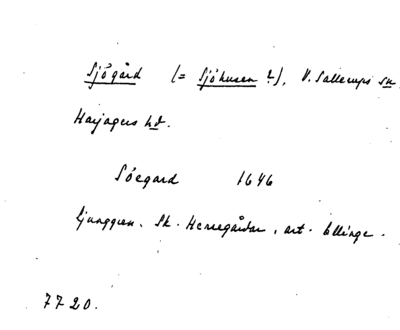 Sjögård (= Sjöhusen ?), V. Sallerups sn.
Harjagers hd.
Söegard 1646
Ljunggren. Sk. Herregårdar, art. Ellinge.
7720.